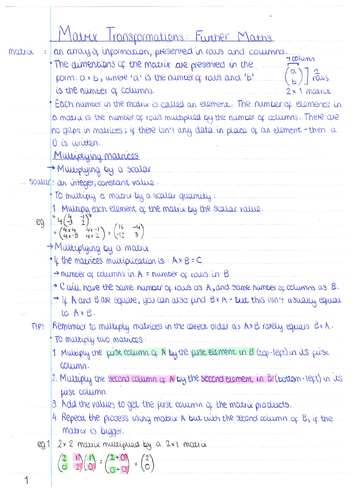 Matrix Transformations: Further Maths
matrix : an array of information, presented in rows and columns.
• The dimensions of the matrix are presented in the
form: a × b, where 'a' is the number of rows and 'b'
is the number of columns.
1 column
(a b) 2 rows
2 × 1 matrix
• Each number in the matrix is called an element. The number of elements in
a matrix is the number of rows multiplied by the number of columns. There are
no gaps in matrices; if there isn't any data in place of an element - then a
0 is written.
Multiplying matrices
→ Multiplying by a scalar
scalar: an integer, constant value.
• To multiply a matrix by a scalar quantity:
1. Multiply each element of the matrix by the scalar value.
eg. 4(4 -1 -3 2)
(4×4 4×-1 4×-3 4×2) = (16 -4 -12 8)
→ Multiplying by a matrix
• If the matrices multiplication is: A × B = C
→ number of columns in A = number of rows in B
→ C will have the same number of rows as A, and same number of columns as B.
→ If A and B are square, you can also find B × A - but this isn't usually equal
to A × B.
TIP! Remember to multiply matrices in the correct order as A×B rarely equals B×A.
• To multiply two matrices:
1. Multiply the first column of A by the first element in B (top-left) in its first
column.
2. Multiply the second column of A by the second element in B (bottom-left) in its
first column.
3. Add the values to get the first column of the matrix products.
4. Repeat the process using matrix A but with the second column of B, if the
matrix is bigger.
eg.1 2×2 matrix multiplied by a 2×1 matrix
= (2+0 0+0) = (2 0)
1